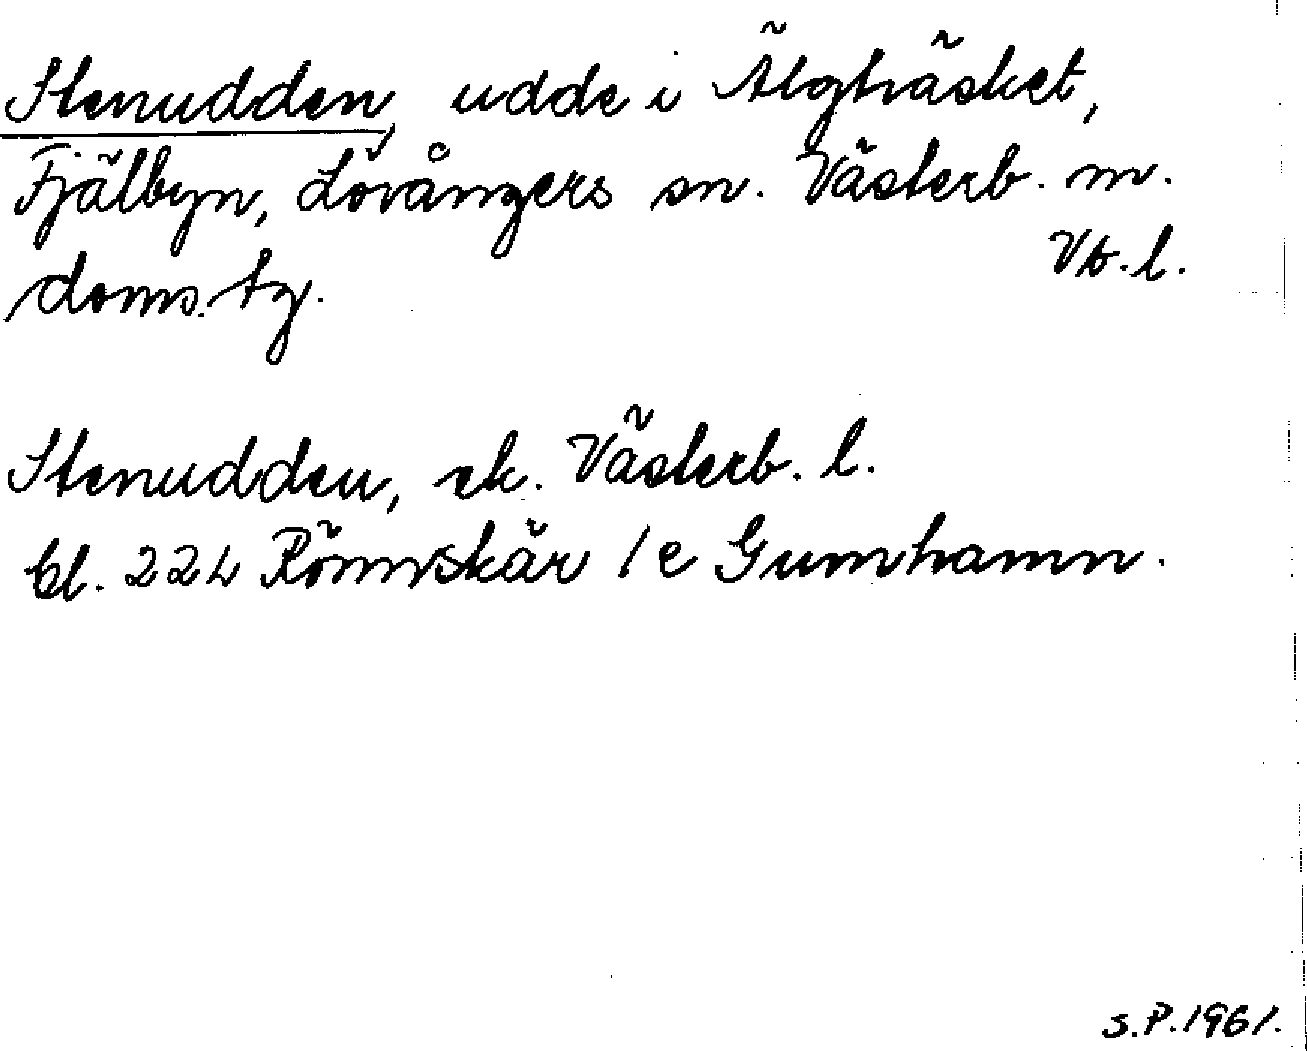 Stenudden, udde i Älgträsket,
Fjälbyn, Lövångers sn. Västerb. m.
doms. tg. Vb. l.
Stenudden, ek. Västerb. l.
bl. 224 Rönnskär /e Gumhamn.
S.P.1961.